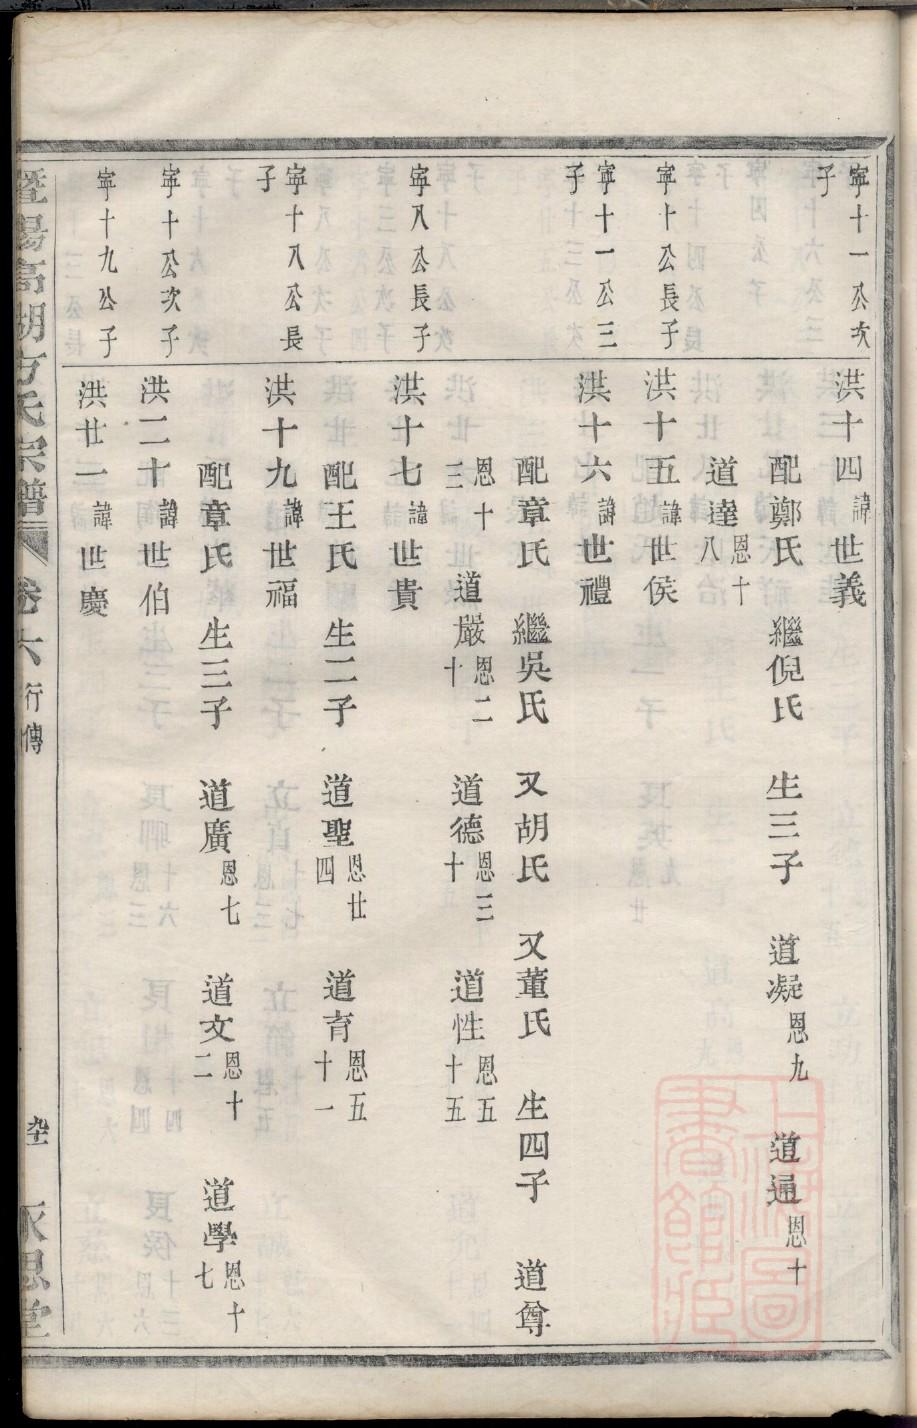 寧十一公次子
洪十四諱世義
配鄭氏 繼倪氏 生三子 道凝恩九 道通恩十
道達恩十八
寧十公長子
洪十五諱世侯
寧十一公三子
洪十六諱世禮
配章氏 繼吳氏 又胡氏 又董氏 生四子 道尊
恩十三 道嚴恩二十 道德恩三十 道性恩五十五
寧八公長子
洪十七諱世貴
配王氏 生二子 道聖恩廿四 道育恩五十一
寧十八公長子
洪十九諱世福
配章氏 生三子 道廣恩七 道文恩十二 道學恩十七
寧十公次子
洪二十諱世伯
寧十九公子
洪廿一諱世慶
暨陽高湖方氏宗譜 卷六 行傳 永思堂